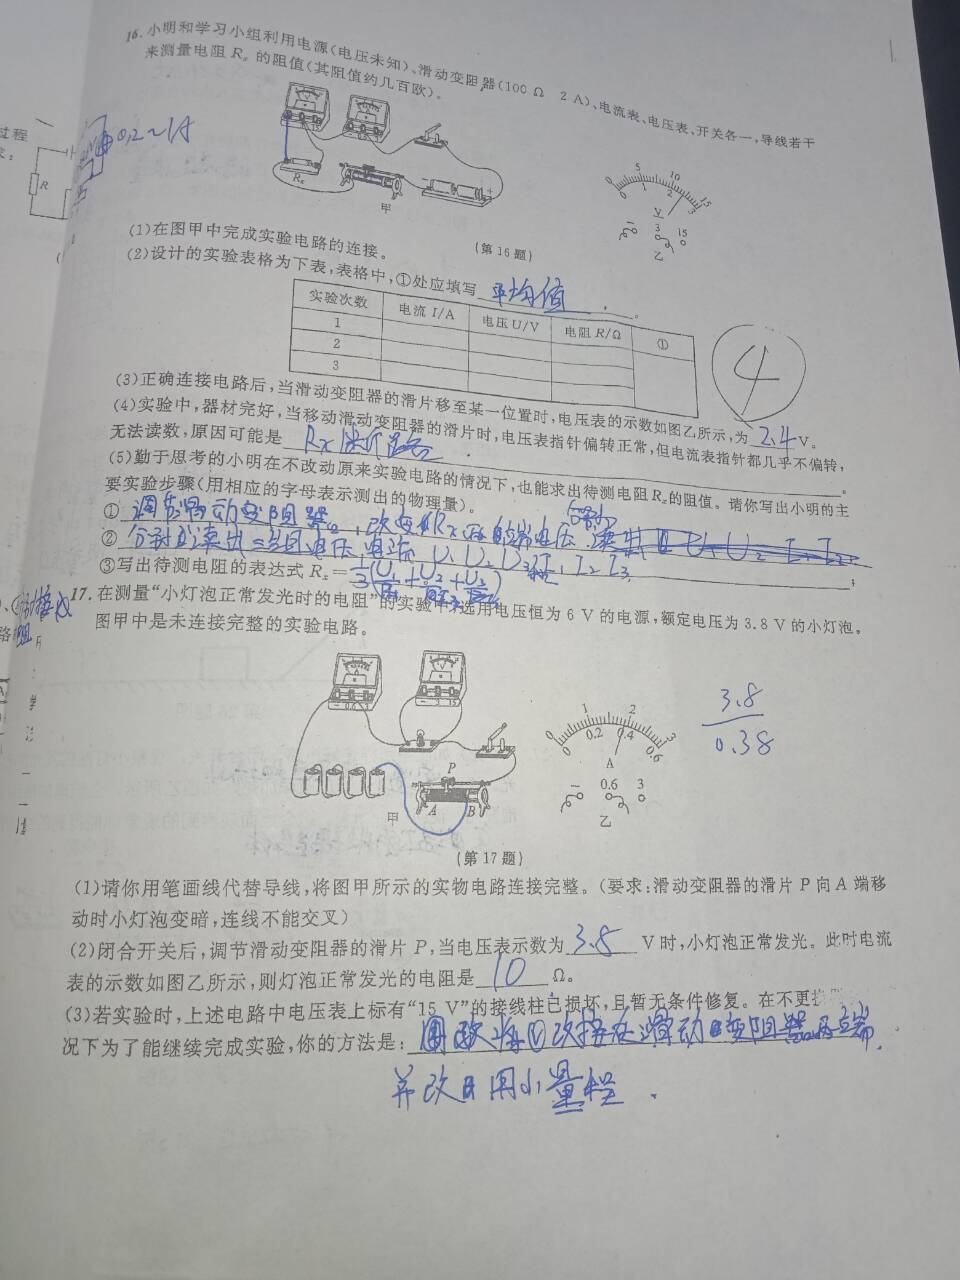 16.小明和学习小组利用电源(电压未知)、滑动变阻器(100 Ω 2 A)、电流表、电压表、开关各一,导线若干
来测量电阻 Rx 的阻值(其阻值约几百欧)。
过程
0.2~1A
R
Rx
甲
0 5 10 15
0 1 2 3
V
− 3 15
乙
(第 16 题)
(1)在图甲中完成实验电路的连接。
(2)设计的实验表格为下表,表格中,①处应填写 平均值 。
实验次数 电流 I/A 电压 U/V 电阻 R/Ω ①
1
2
3
4
(3)正确连接电路后,当滑动变阻器的滑片移至某一位置时,电压表的示数如图乙所示,为 2.4 V。
(4)实验中,器材完好,当移动滑动变阻器的滑片时,电压表指针偏转正常,但电流表指针都几乎不偏转,
无法读数,原因可能是 Rx 。
(5)勤于思考的小明在不改动原来实验电路的情况下,也能求出待测电阻 Rx 的阻值。请你写出小明的主
要实验步骤(用相应的字母表示测出的物理量)。
① 调节滑动变阻器 ,改变 Rx 两端电压
② 分别 读出三组电压电流 U1 U2 U3 I1 I2 I3 ;
③写出待测电阻的表达式 Rx= 1/3(U1 + U2 + U3)
17.在测量“小灯泡正常发光时的电阻”的实验中,选用电压恒为 6 V 的电源,额定电压为 3.8 V 的小灯泡。
图甲中是未连接完整的实验电路。
− 0.6 3
− 3 15
P
A B
甲
0 1 2 3
0 0.2 0.4 0.6
A
− 0.6 3
乙
3.8
0.38
(第 17 题)
(1)请你用笔画线代替导线,将图甲所示的实物电路连接完整。(要求:滑动变阻器的滑片 P 向 A 端移
动时小灯泡变暗,连线不能交叉)
(2)闭合开关后,调节滑动变阻器的滑片 P,当电压表示数为 3.8 V 时,小灯泡正常发光。此时电流
表的示数如图乙所示,则灯泡正常发光的电阻是 10 Ω。
(3)若实验时,上述电路中电压表上标有“15 V”的接线柱已损坏,且暂无条件修复。在不更
况下为了能继续完成实验,你的方法是: 将 V 改接在滑动变阻器两端,
并改用小量程.